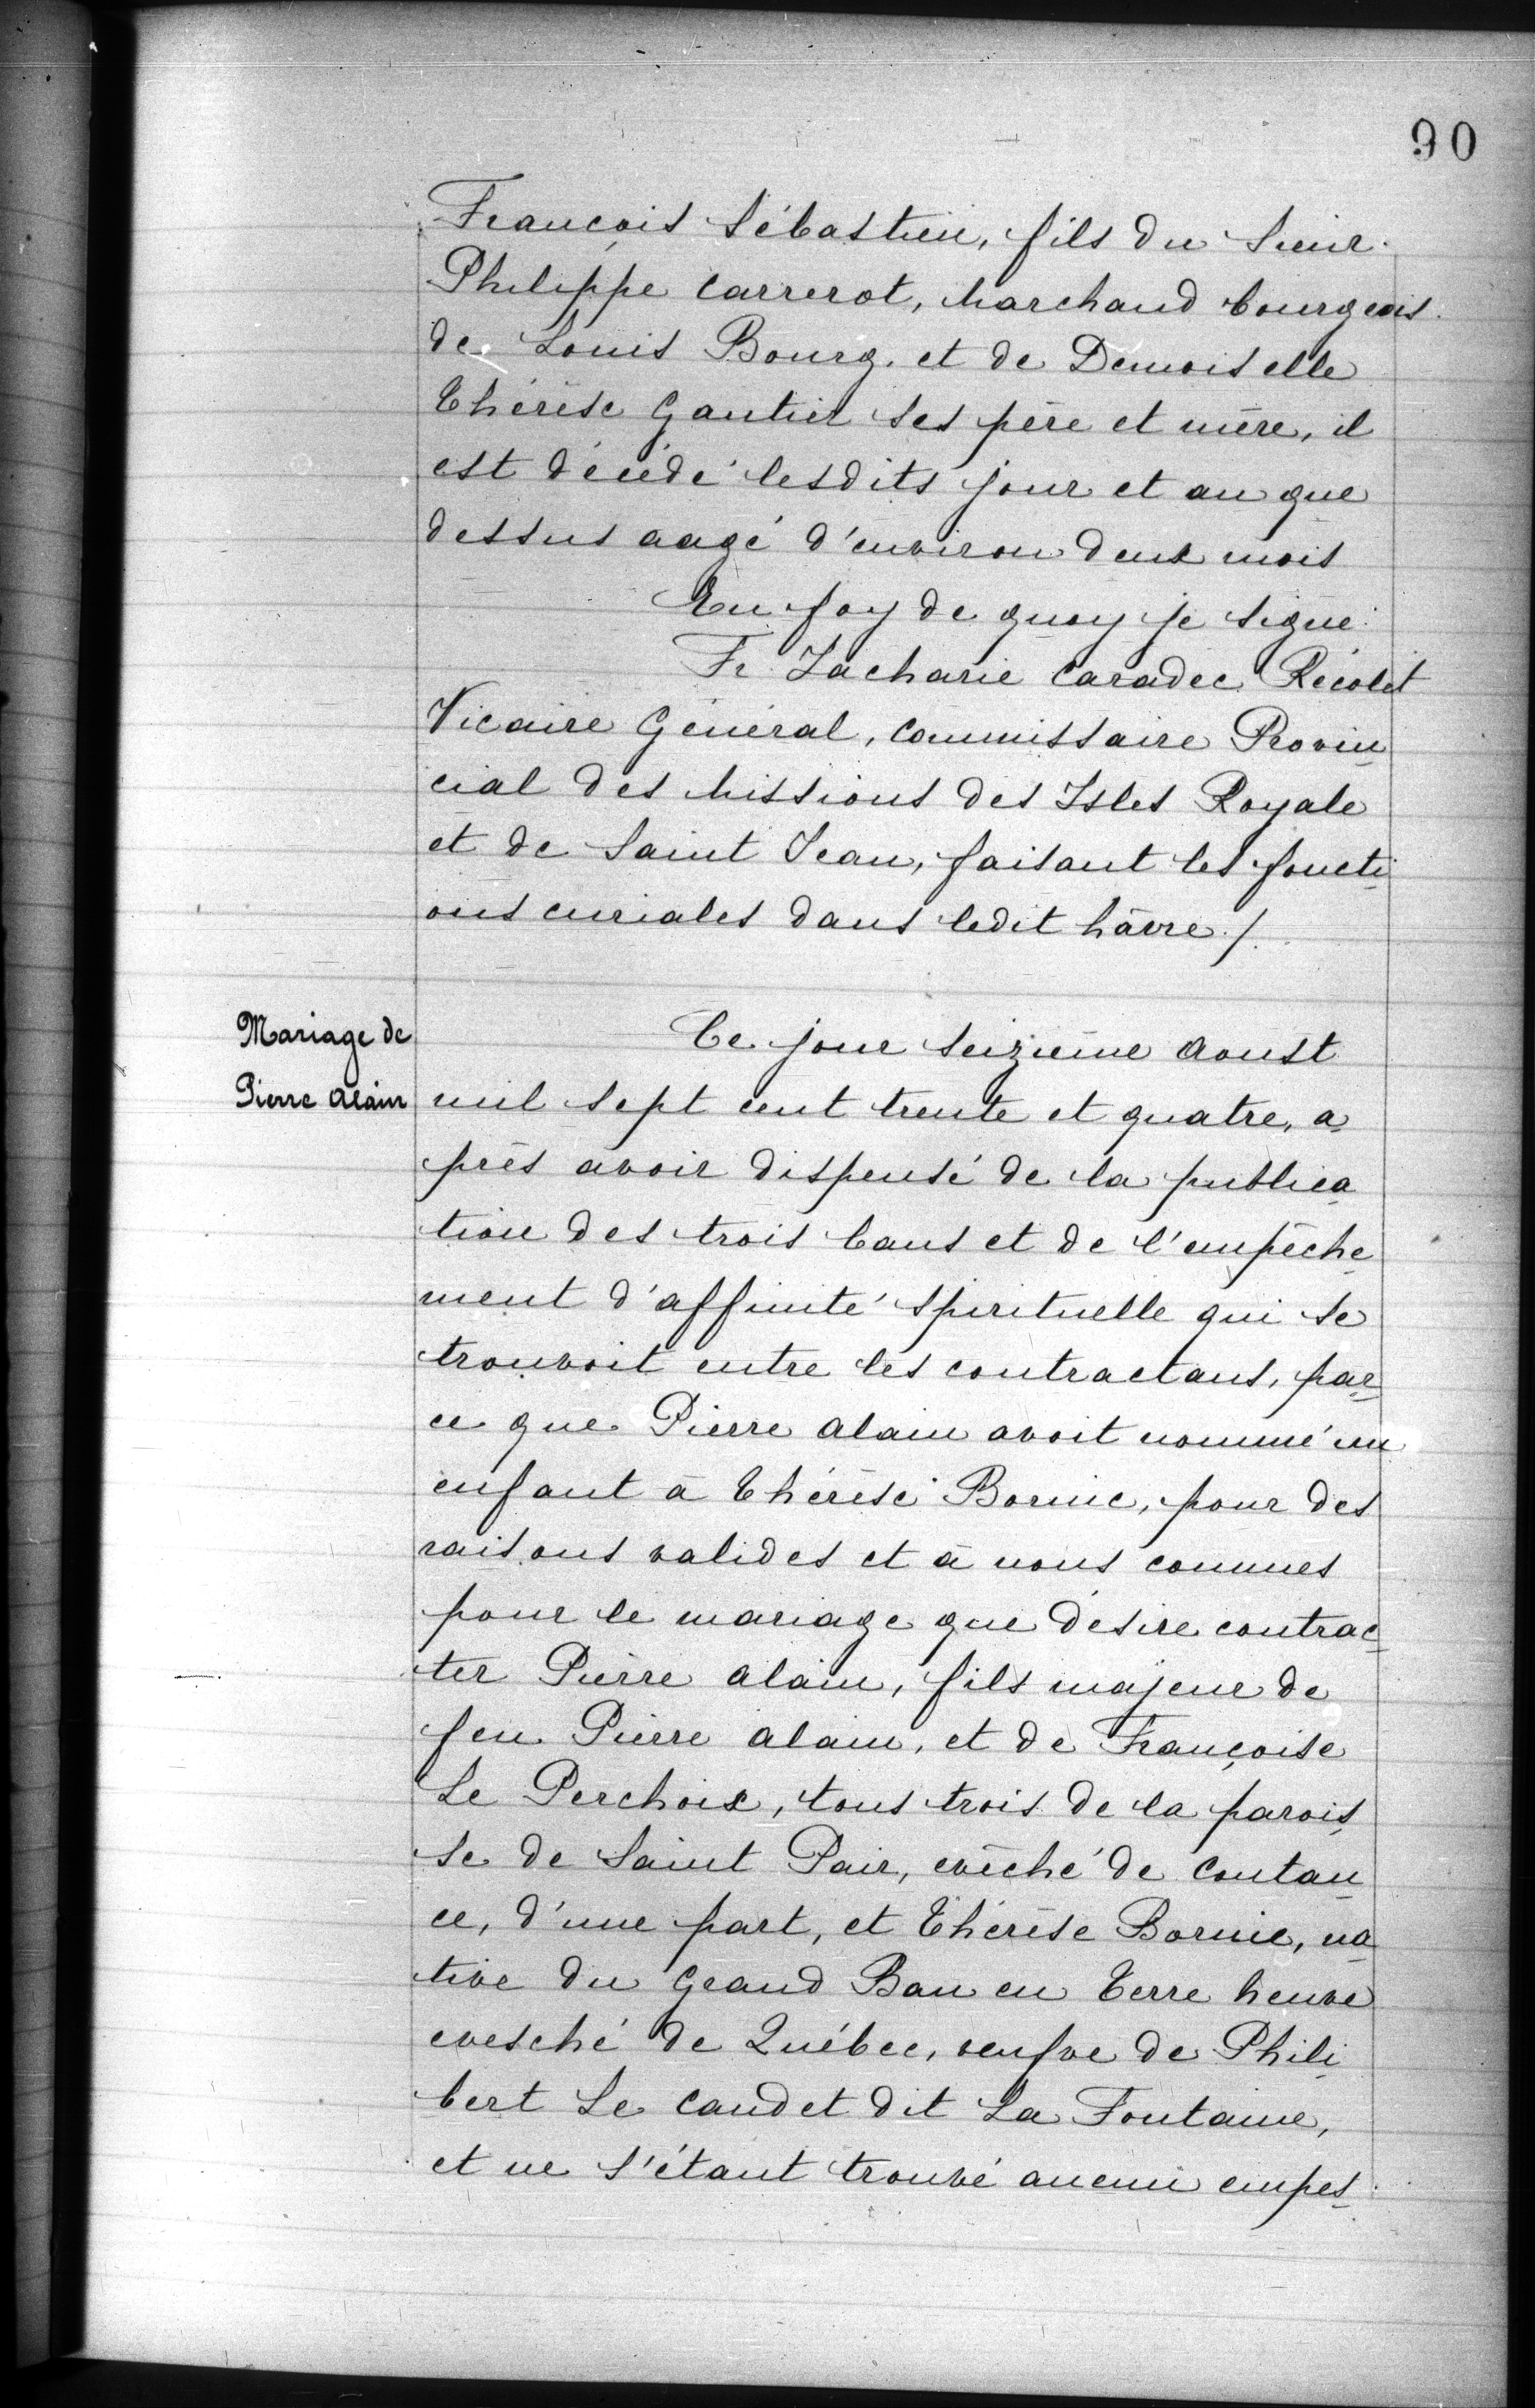 90
François Sébastien, fils du Sieur
Philippe Carrerot, Marchand bourgeois
de Louis Bourg. et de Demoiselle
Thérèse Gautier ses père et mère, il
est décédé lesdits jour et an que
dessus aagé d'environ deux mois
En foy de quoy je signe
Fr Zacharie Caradec Récolet
Vicaire Général, Commissaire Provin
cial des Missions des Isles Royale
et de Saint Jean, faisant les foncti
ons curiales dans ledit hâvre ./.
Mariage de
Pierre Alain
Ce jour seizième Aoust
mil sept cent trente et quatre, a
près avoir dispensé de la publica
tion des trois bans et de l'empêche
ment d'affinité spirituelle qui se
trouvoit entre les contractans, par
ce que Pierre Alain avoit nommé un
enfant à Thérèse Bornic, pour des
raisons valides et à nous connues
pour le mariage que désire contrac
ter Pierre Alain, fils majeur de
feu Pierre Alain, et de Françoise
Le Perchoix, tous trois de la parois
se de Saint Pair, evêché de Coutan
ce, d'une part, et Thérèse Bornic, na
tive du Grand Ban en Terre Neuve
evesché de Québec, veufve de Phili
bert Le Caudet dit La Fontaine,
et ne s'étant trouvé aucun empes